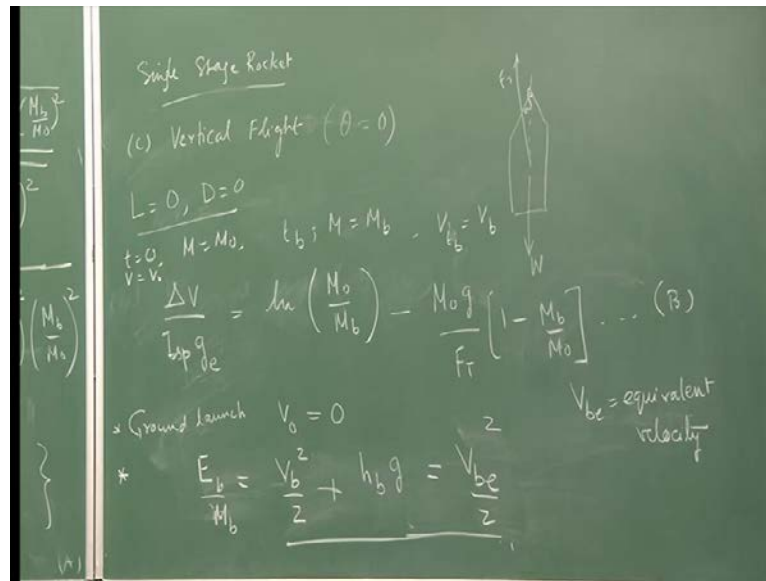 Single Stage Rocket
(C) Vertical Flight (θ = 0)
L = 0, D = 0
t = 0, M = M₀, t_b, M = M_b, V_{t_b} = V_b
V = V₀
ΔV / (I_sp g_e) = ln (M₀ / M_b) − (M₀ g / F_T) [1 − M_b / M₀] .... (B)
V_be = equivalent velocity
* Ground launch V₀ = 0
* E_b / M_b = V_b² / 2 + h_b g = V_be² / 2
F_T
W
(M_b / M₀)²
)²
) (M_b / M₀)²
}
(A)